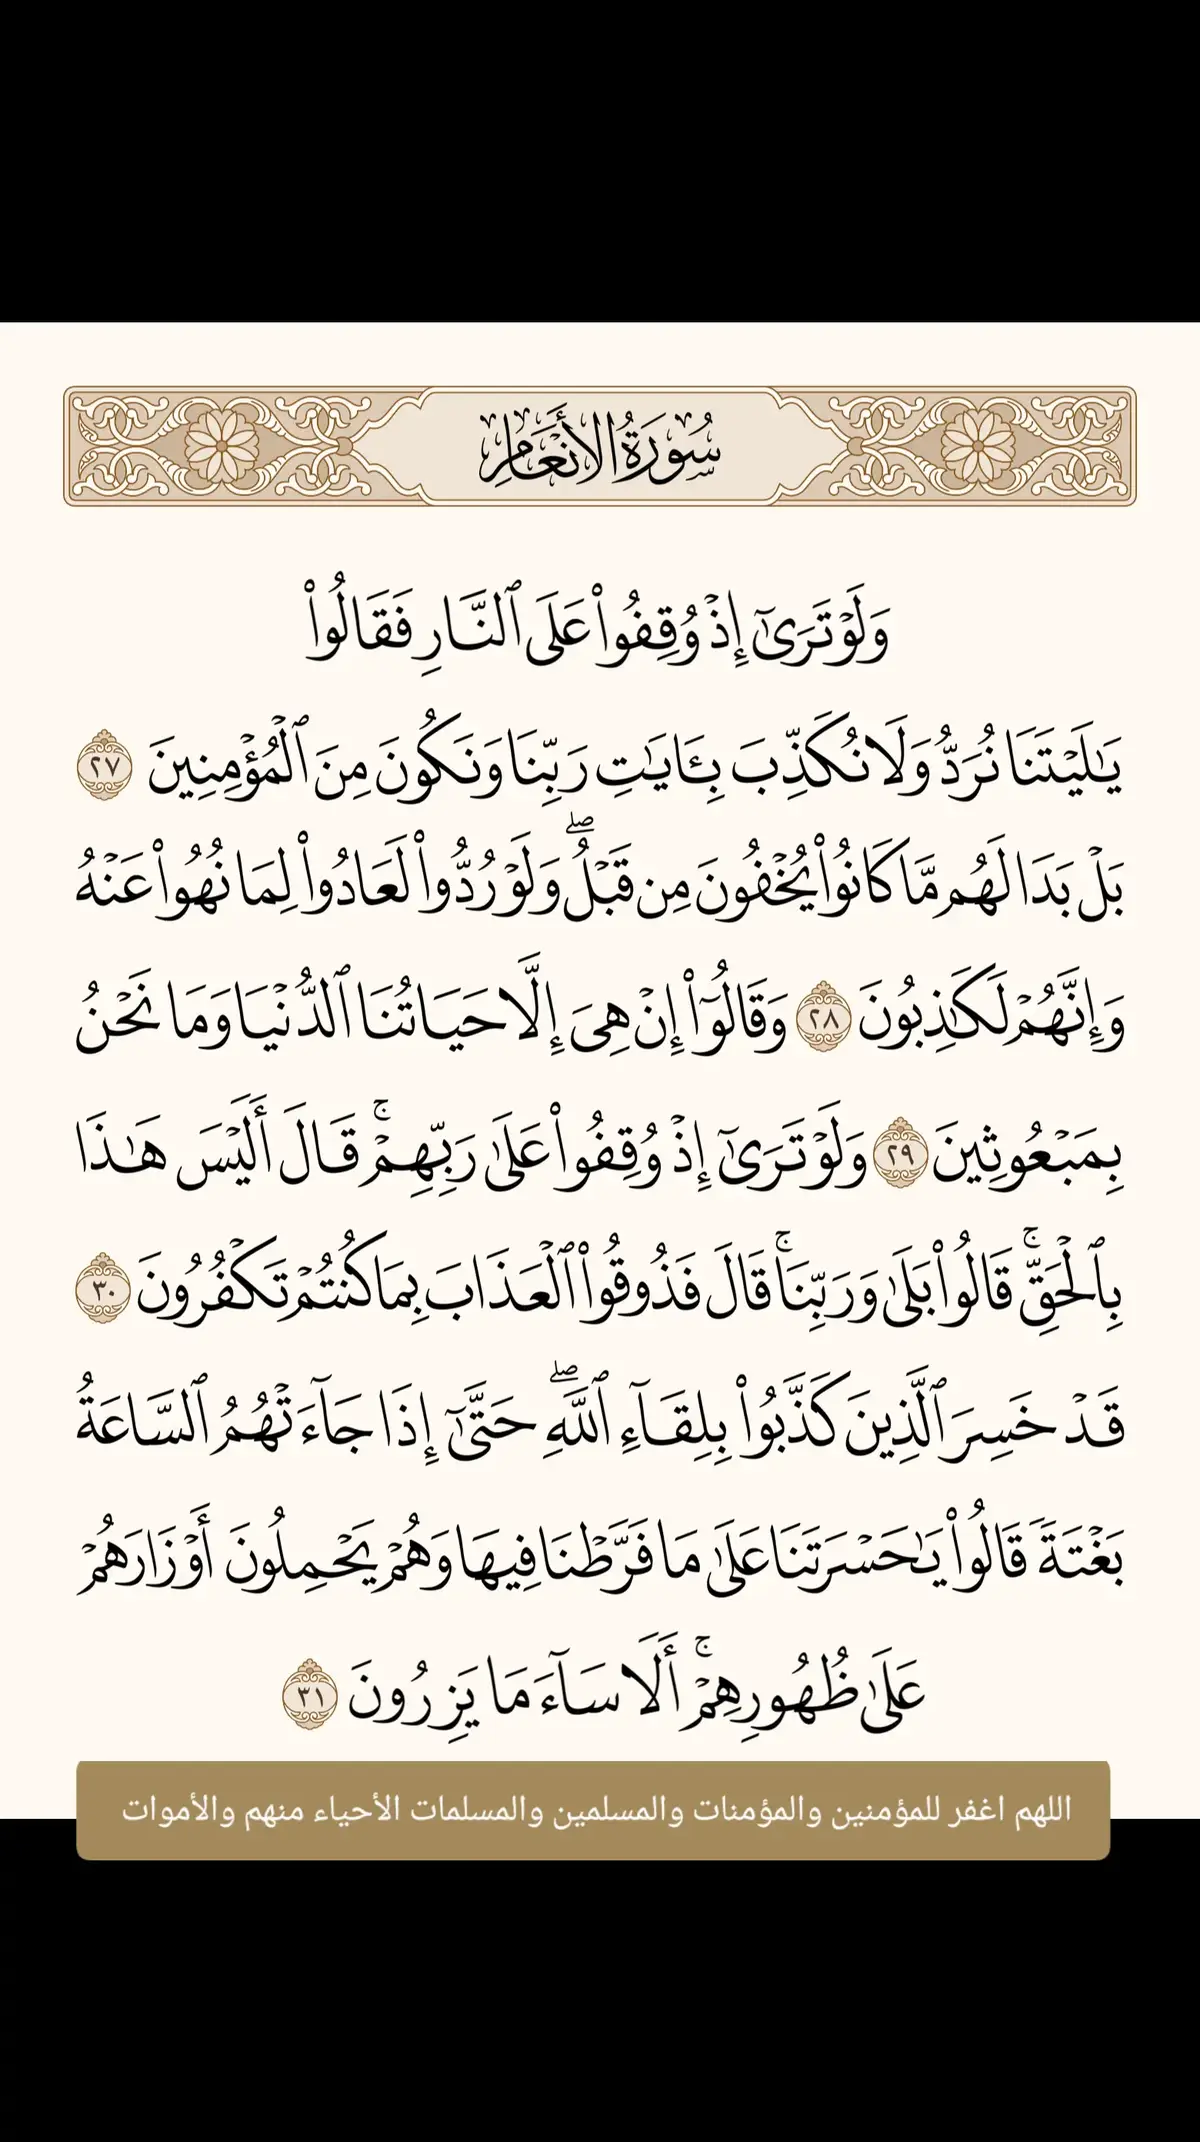 سُورَةُ الأَنْعَامِ
وَلَوْ تَرَىٰٓ إِذْ وُقِفُوا۟ عَلَى ٱلنَّارِ فَقَالُوا۟
يَـٰلَيْتَنَا نُرَدُّ وَلَا نُكَذِّبَ بِـَٔايَـٰتِ رَبِّنَا وَنَكُونَ مِنَ ٱلْمُؤْمِنِينَ ٢٧
بَلْ بَدَا لَهُم مَّا كَانُوا۟ يُخْفُونَ مِن قَبْلُ ۖ وَلَوْ رُدُّوا۟ لَعَادُوا۟ لِمَا نُهُوا۟ عَنْهُ
وَإِنَّهُمْ لَكَـٰذِبُونَ ٢٨ وَقَالُوٓا۟ إِنْ هِىَ إِلَّا حَيَاتُنَا ٱلدُّنْيَا وَمَا نَحْنُ
بِمَبْعُوثِينَ ٢٩ وَلَوْ تَرَىٰٓ إِذْ وُقِفُوا۟ عَلَىٰ رَبِّهِمْ ۚ قَالَ أَلَيْسَ هَـٰذَا
بِٱلْحَقِّ ۚ قَالُوا۟ بَلَىٰ وَرَبِّنَا ۚ قَالَ فَذُوقُوا۟ ٱلْعَذَابَ بِمَا كُنتُمْ تَكْفُرُونَ ٣٠
قَدْ خَسِرَ ٱلَّذِينَ كَذَّبُوا۟ بِلِقَآءِ ٱللَّهِ ۖ حَتَّىٰٓ إِذَا جَآءَتْهُمُ ٱلسَّاعَةُ
بَغْتَةً قَالُوا۟ يَـٰحَسْرَتَنَا عَلَىٰ مَا فَرَّطْنَا فِيهَا وَهُمْ يَحْمِلُونَ أَوْزَارَهُمْ
عَلَىٰ ظُهُورِهِمْ ۚ أَلَا سَآءَ مَا يَزِرُونَ ٣١
اللهم اغفر للمؤمنين والمؤمنات والمسلمين والمسلمات الأحياء منهم والأموات